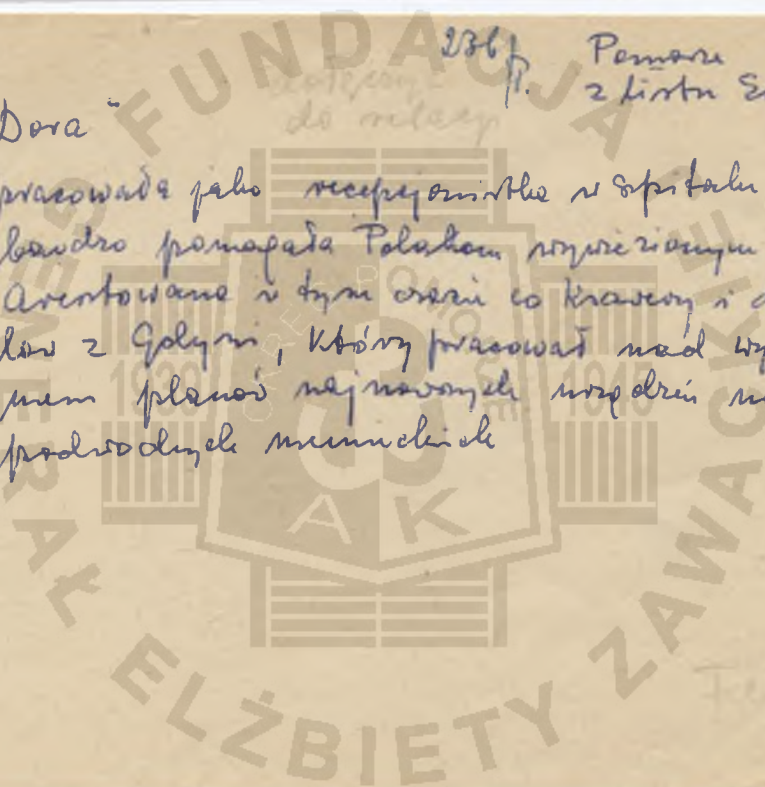 236/P. Pomorze
z listu
Dora"
dotyczy
do relacji
pracowała jako recepcjonistka w szpitalu
bardzo pomagała Polakom wywiezionym
Aresztowana w tym czasie co Krawcowy i
z Gdyni, który pracował nad
planów najnowszych urządzeń
podwodnych niemieckich
FUNDACJA GENERAŁ ELŻBIETY ZAWACKIEJ
OKRĘG POMORZE
1939 1945
AK